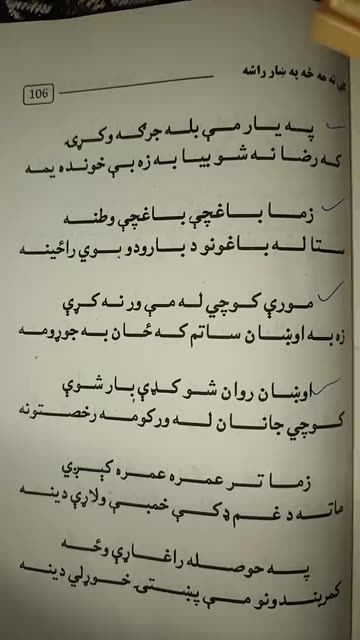 نه مه څه په ښار راشه
106
په يار مې بله جرګه وکړۍ
که رضا نه شو بيا به زه بې خونده يمه
زما باغچې باغچې وطنه
ستا له باغونو د بارودو بوي راځينه
مورې کوچي له مې ور نه کړې
زه به اوښان ساتم که ځان به جوړومه
اوښان روان شو کډې بار شوې
کوچي جانان له ورکومه رخصتونه
زما تر عمره عمره کېږي
ماته د غم ډکې خمبې ولاړې دينه
په حوصله راغاړې وځه
کمربندونو مې پښتۍ خوړلي دينه